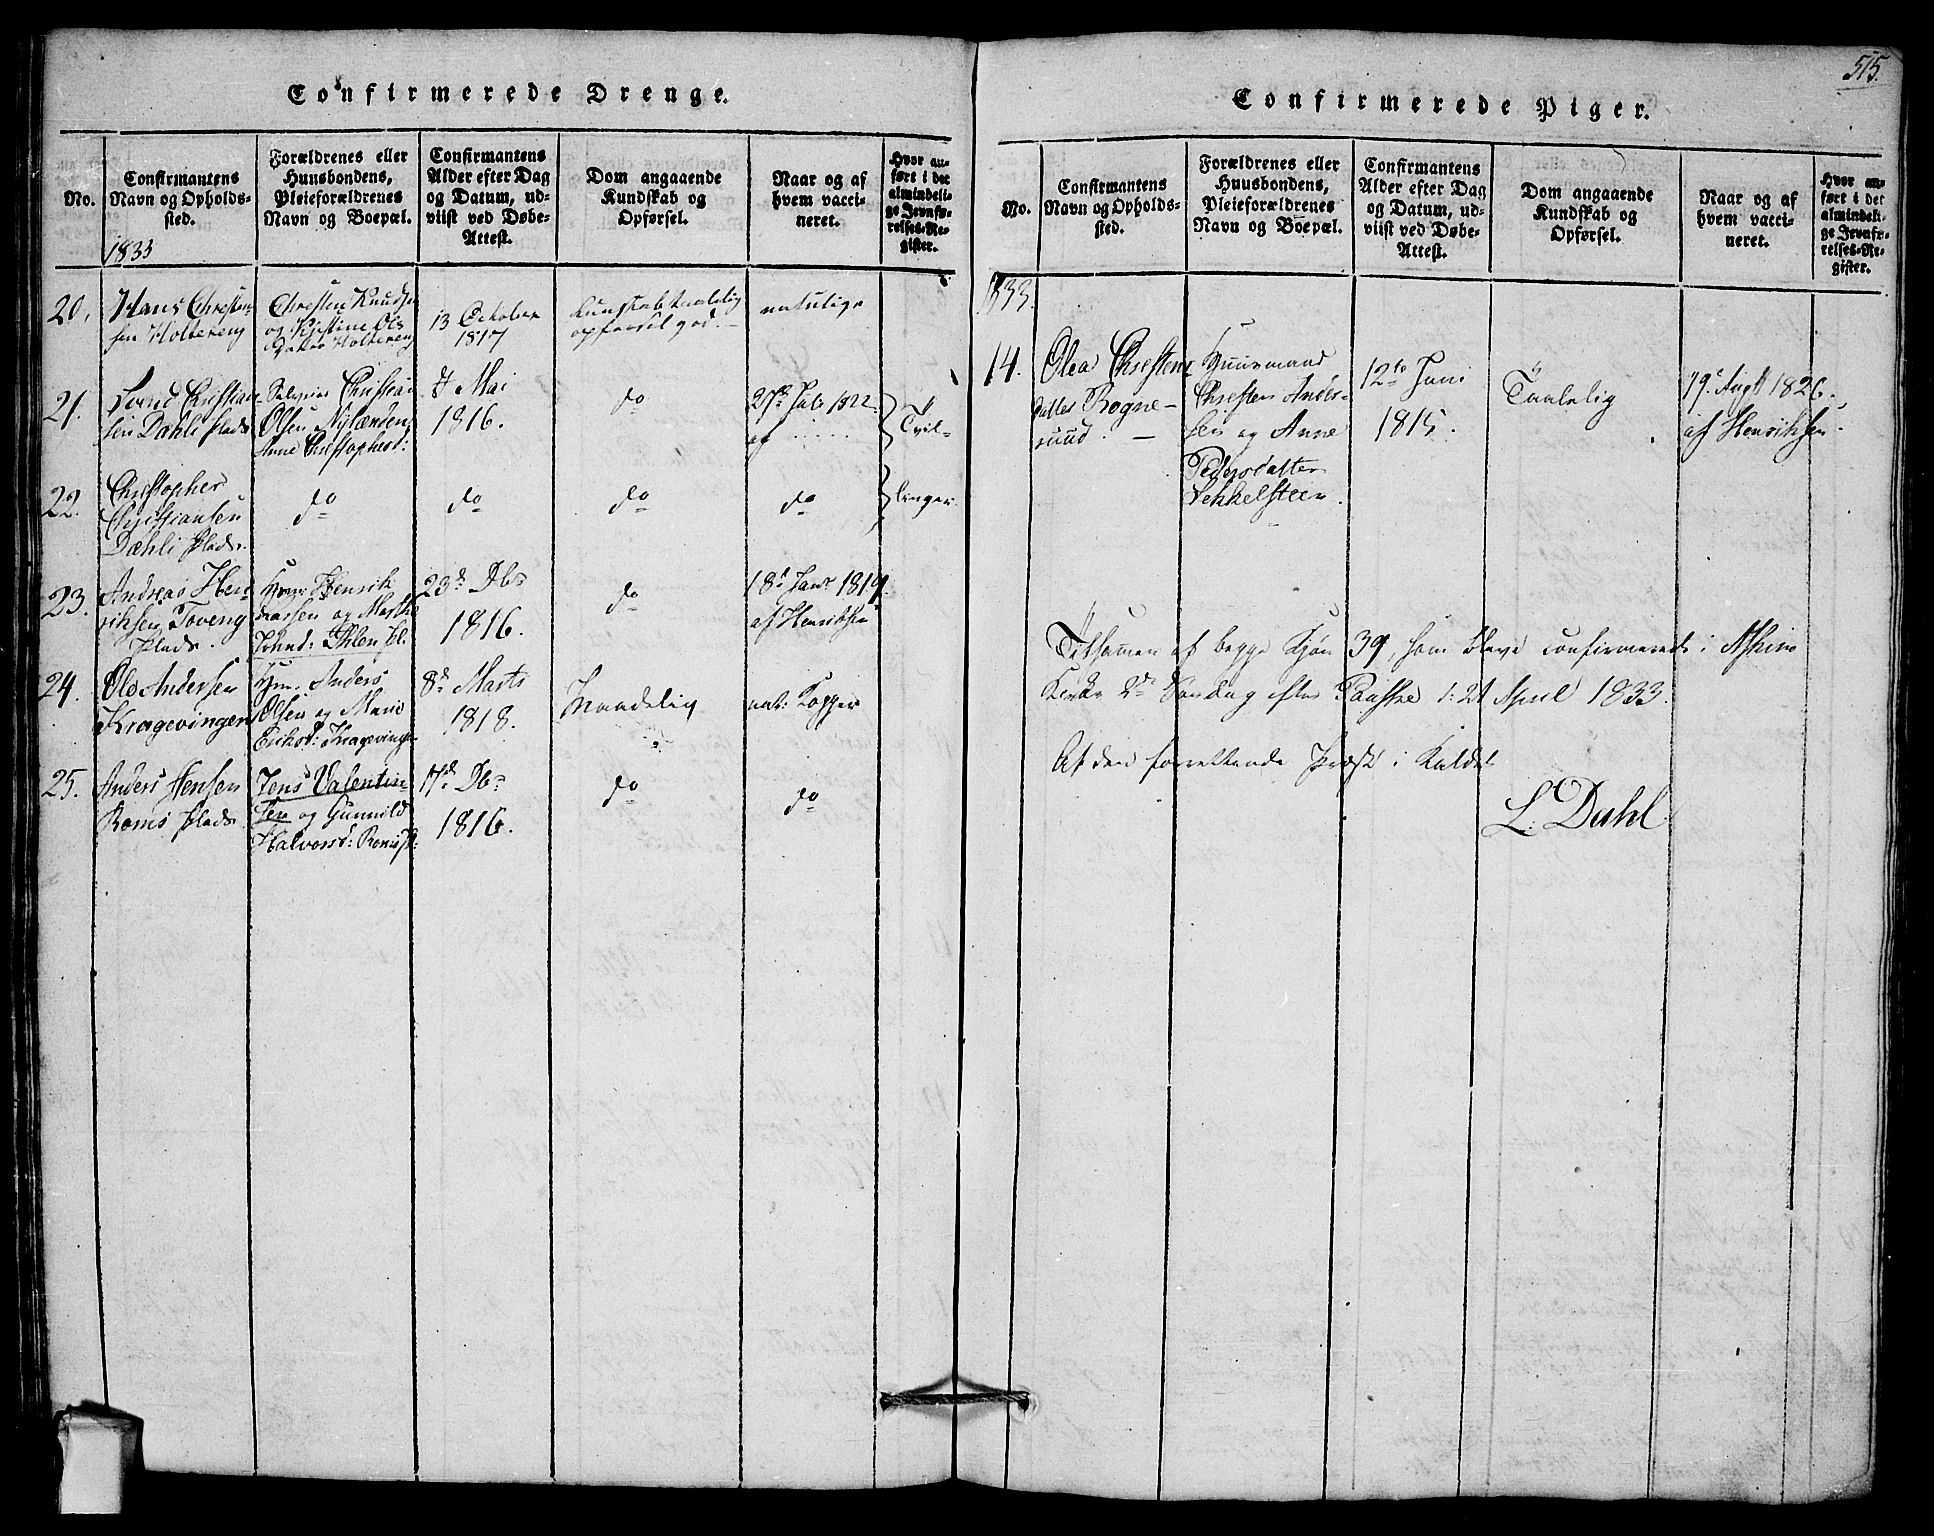 Confirmerede Drenge.
No.
Confirmantens
Navn og Opholds-
sted.
1833
Forældrenes eller
Huusbondens,
Pleieforældrenes
Navn og Boepæl.
Confirmantens
Alder efter Dag
og Datum, ud-
viist ved Døbe-
Attest.
Dom angaaende
Kundskab og
Opførsel.
Naar og af
hvem vacci-
neret.
Hvor an-
ført i det
almindeli-
ge Jevnfø-
relses-Re-
gister.
20.
Hans Christen-
sen Holtereng
Christen Knudsen
og Kjestine Ols
Datter Holtereng
13 October
1817
Kundskab taalelig
opførsel god.
naturlige
21.
Christian-
sen Dahli Plads
Christian
Olsen Nylænden,
Anne Christophersd:
7 Mai
1816.
do
27de Juli 1822
af .....
Tvil-
22.
Christopher
Christiansen
Dæhli Plads.
do
do
do
do
linger.
23.
Andreas Hen-
riksen Toveng
Plads.
Henrik
Larssen og Marthe
Johnsd: Ihlen Pl:
23de Dbr
1816.
do
18de Janr 1819
af Henriksen
24.
Ole Andersen
Kragevingen
Hm. Anders
Olsen og Marie
Eriksd: Kragevingen
8de Marts
1818.
Maadelig
nat: Kopper
25.
Anders Jensen
Roms Plads
Jens Valentin-
sen og Gunnild
Halvorsd: Roms Pl:
17de Dbr
1816.
do
do
515.
Confirmerede Piger.
No.
Confirmantens
Navn og Opholds-
sted.
Forældrenes eller
Huusbondens,
Pleieforældrenes
Navn og Boepæl.
Confirmantens
Alder efter Dag
og Datum, ud-
viist ved Døbe-
Attest.
Dom angaaende
Kundskab og
Opførsel.
Naar og af
hvem vacci-
neret.
Hvor an-
ført i det
almindeli-
ge Jevnfø-
relses-Re-
gister.
1833.
14.
Olea Christens
datter Rogne-
ruud.
Huusmand
Christen Ander-
sen og Anne
Pedersdatter
Vekkelsteen.
12te Juni
1815.
Taalelig
19de Augt 1826.
af Henriksen.
Tilsamen af begge Kjøn 39, som bleve confirmerede i Askim
Kirke 2den Søndag efter Paaske d: 21 April 1833.
Af den forrettende Præst i Kaldet
L: Dahl